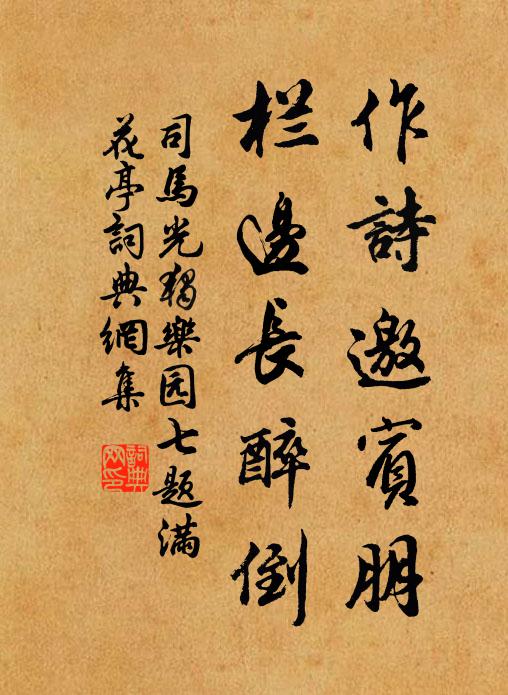 作詩邀賓朋
栏邊長醉倒
司馬光獨樂园七题滿
花亭詞典網集
詞典
网印